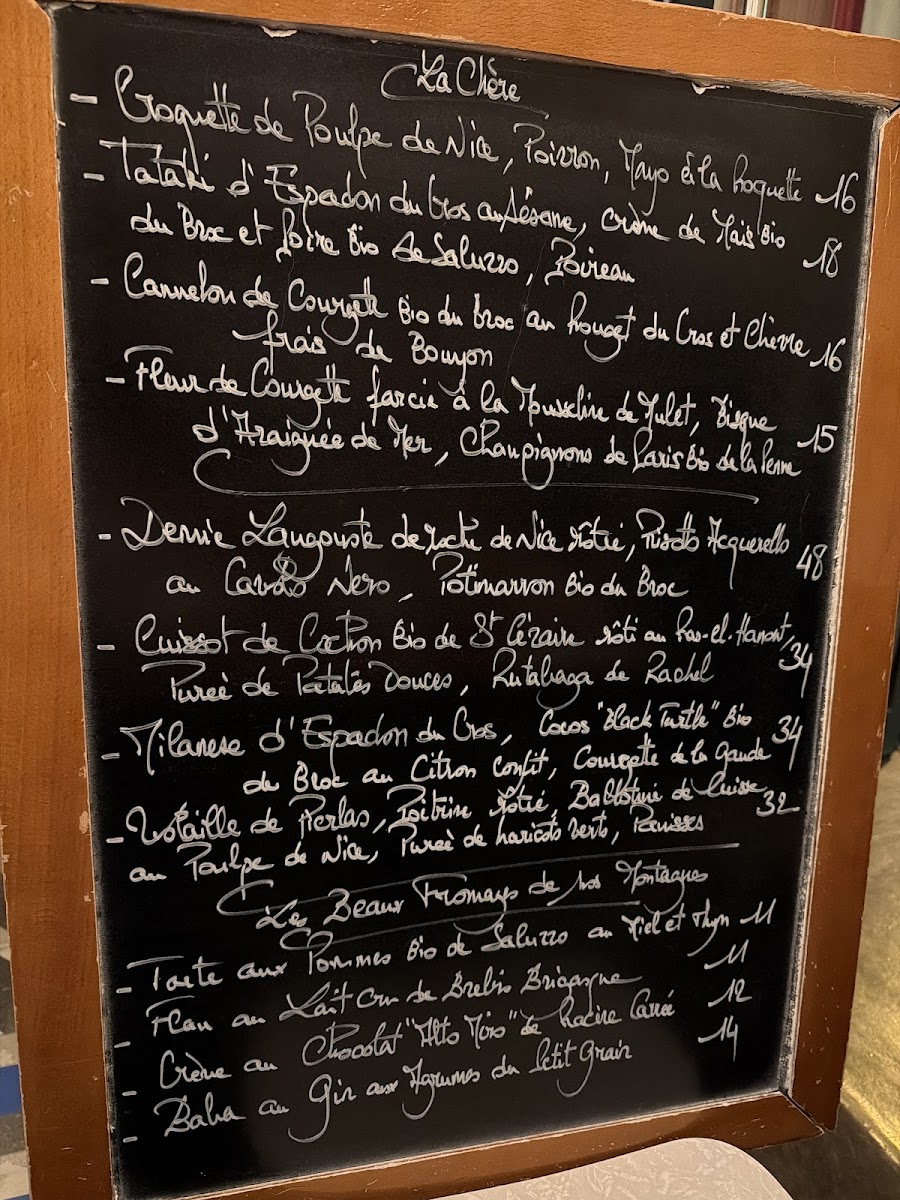 La Chère
- Croquette de Poulpe de Nice, Poivron, Mayo à la Roquette 16
- Tataki d'Espadon du Cros au Sésame, crème de Maïs Bio
du Broc et Poire Bio de Saluzzo, Poireau 18
- Cannelon de Courgette Bio du Broc au Rouget du Cros et Chèvre
frais de Bouyon 16
- Fleur de Courgette farcie à la Mousseline de Mulet, Bisque
d'Araignée de Mer, Champignons de Paris Bio de la Penne 15
- Demie Langouste de roche de Nice rôtie, Risotto Acquerello
au Cavolo Nero, Potimarron Bio du Broc 48
- Cuissot de Cochon Bio de St Cézaire rôti au Ras-el-Hanout,
Pureè de Patates Douces, Rutabaga de Rachel 34
- Milanese d'Espadon du Cros, Cocos "Black Turtle" Bio
du Broc au Citron Confit, Courgette de la Gaude 34
- Volaille de Pierlas, Poitrine rôtie, Ballotine de Cuisse
au Poulpe de Nice, Pureè de haricots verts, Panisses 32
Les Beaux Fromages de nos Montagnes
- Tarte aux Pommes Bio de Saluzzo au Miel et Thym 11
- Flan au Lait Cru de Brebis Brigasque 11
- Crème au Chocolat "Alto" de Racine Carrée 12
- Baba au Gin aux Agrumes du Petit Grain 14